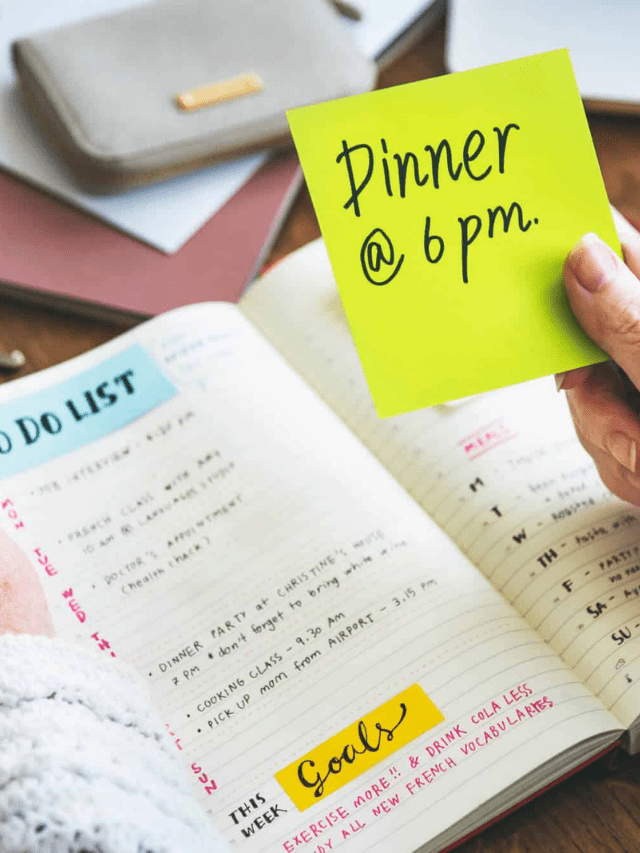 Dinner
@ 6 pm.
O DO LIST
MON
• JOB INTERVIEW -
• FRENCH CLASS WITH AMY
10 AM @ LANGUAGES STUDIO
TUE
• DOCTOR'S APPOINTMENT
(health check)
WED
TH
• DINNER PARTY at CHRISTINE'S HOUSE
7 PM * don't forget to bring white wine
• COOKING CLASS - 9.30 AM
• PICK UP mom from AIRPORT - 3.15 PM
SUN
THIS
WEEK
Goals
EXERCISE MORE!! & DRINK COLA LESS
DY ALL NEW FRENCH VOCABULARIES
M -
T -
W -
TH - Pasta
F - PARTY
SA -
SU -